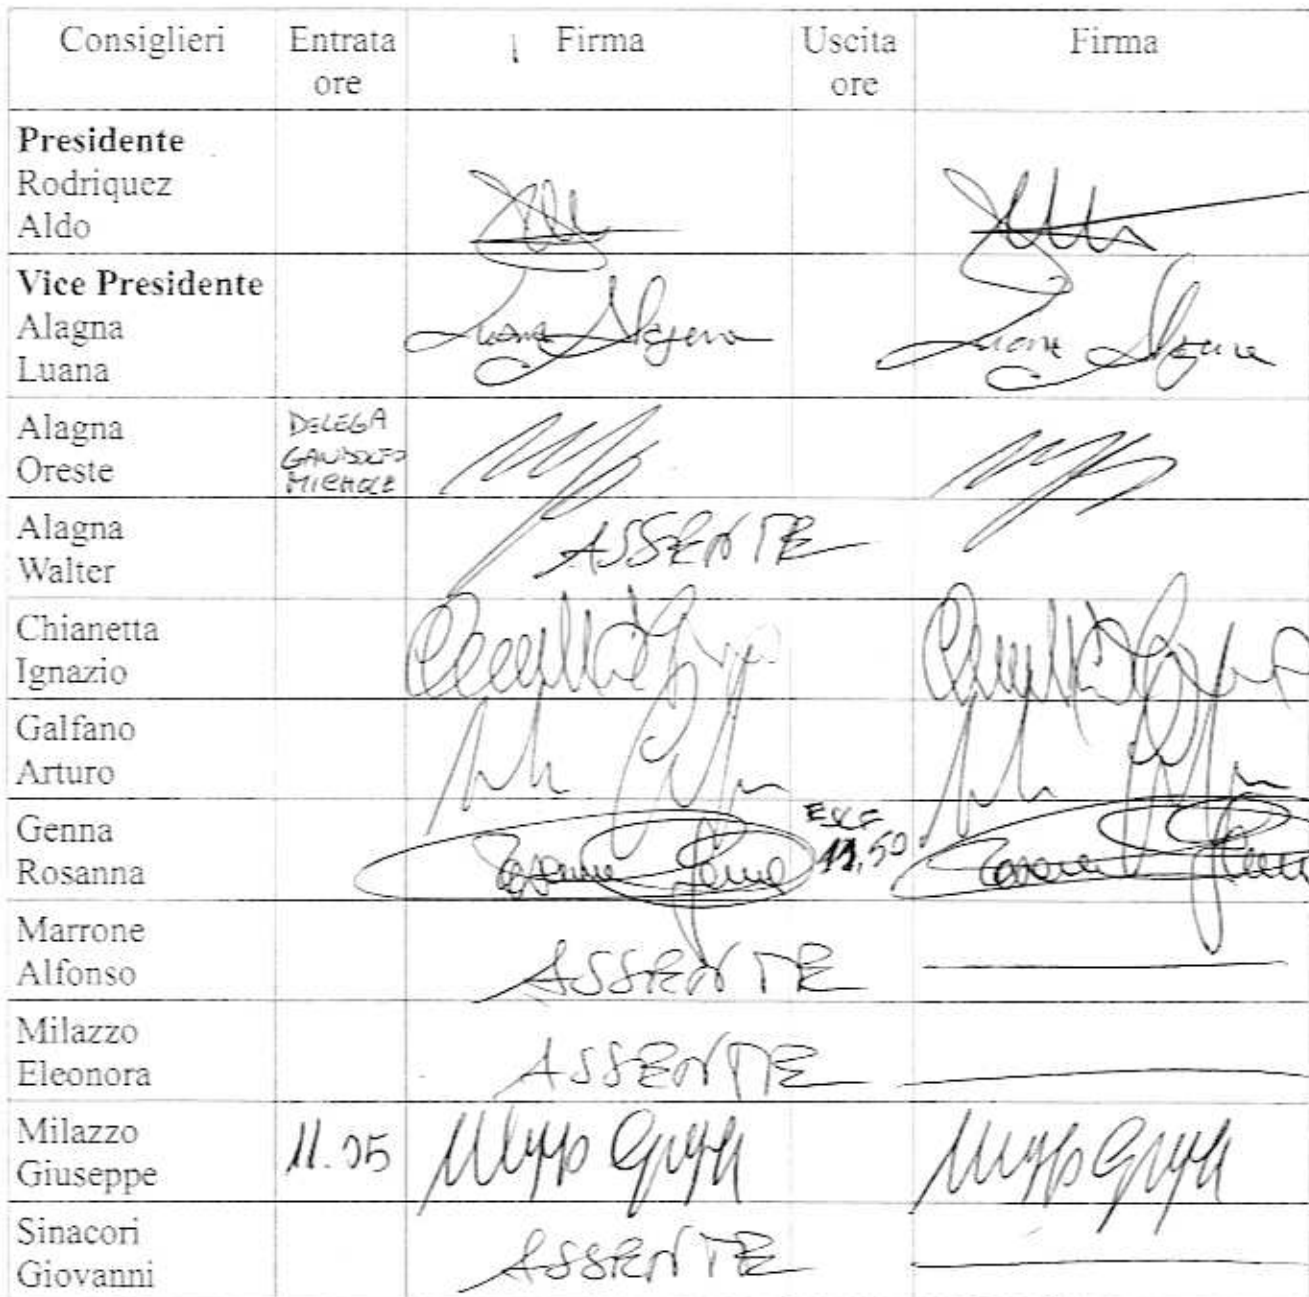 Consiglieri Entrata ore Firma Uscita ore Firma
Presidente
Rodriquez
Aldo
Vice Presidente
Alagna
Luana
Luana Alagna Luana Alagna
Alagna
Oreste
DELEGA
GANDOLFO
MICHELE
Alagna
Walter
ASSENTE
Chianetta
Ignazio
Galfano
Arturo
Genna
Rosanna
Rosanna Genna
ESCE
11,50
Rosanna Genna
Marrone
Alfonso
ASSENTE
Milazzo
Eleonora
ASSENTE
Milazzo
Giuseppe
11.05
Sinacori
Giovanni
ASSENTE